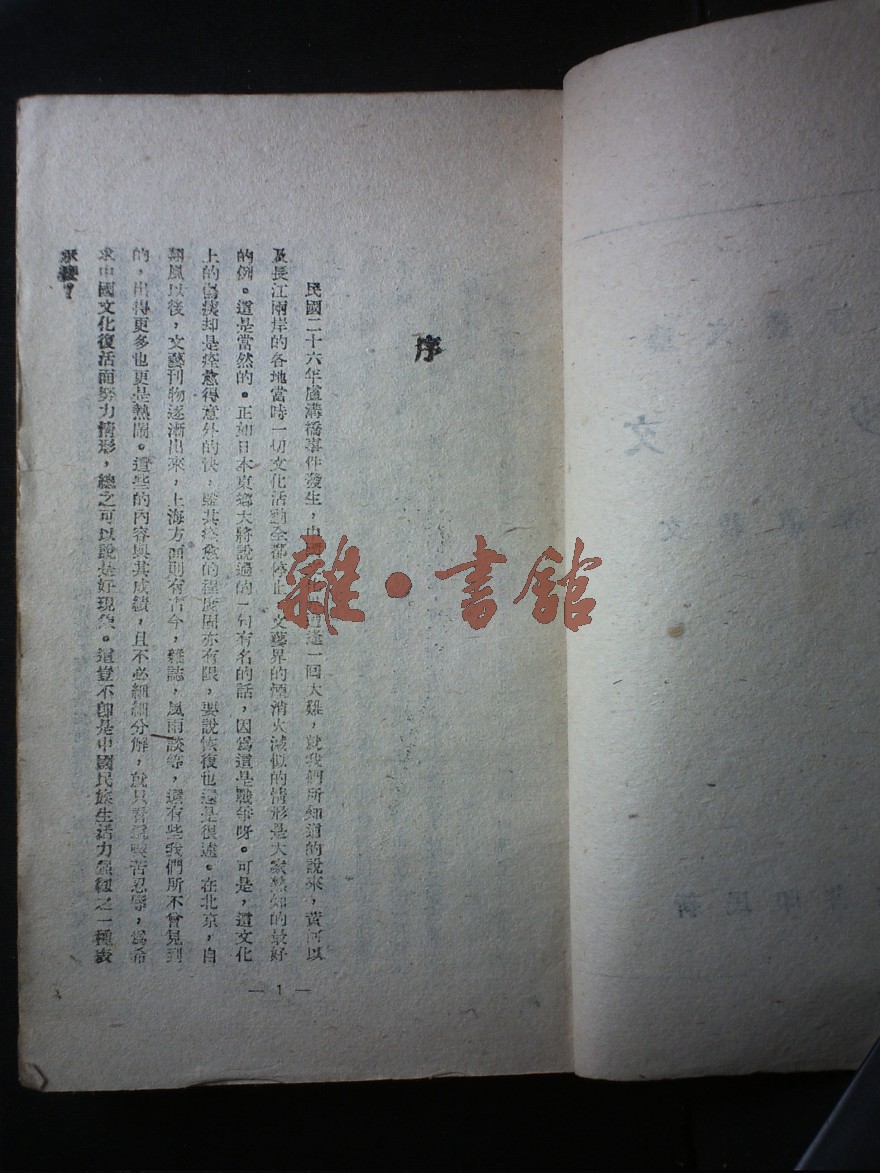 序
民國二十六年蘆溝橋事件發生，中國 遭逢一回大難，就我們所知道的說來，黃河以
及長江兩岸的各地當時一切文化活動全都停止，文藝界的煙消火滅似的情形是大家熟知的最好
的例。這是當然的。正如日本東鄉大將說過的一句有名的話，因爲這是戰爭呀。可是，這文化
上的傷痍却是痊愈得意外的快，雖其痊愈的程度固亦有限，要說恢復也還是很遠。在北京，自
翔風以後，文藝刊物逐漸出來，上海方面則有古今，雜誌，風雨談等，還有些我們所不曾見到
的，出得更多也更是熱鬧。這些的內容與其成績，且不必細細分解，就只看 喫苦忍辱，爲希
求中國文化復活而努力情形，總之可以說是好現象。這豈不卽是中國民族生活力强 之一種表
— 1 —
雜·書館
文
新民印